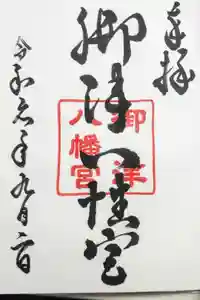 奉拝
御津八幡宮
御津
八幡宮
令和元年九月二日